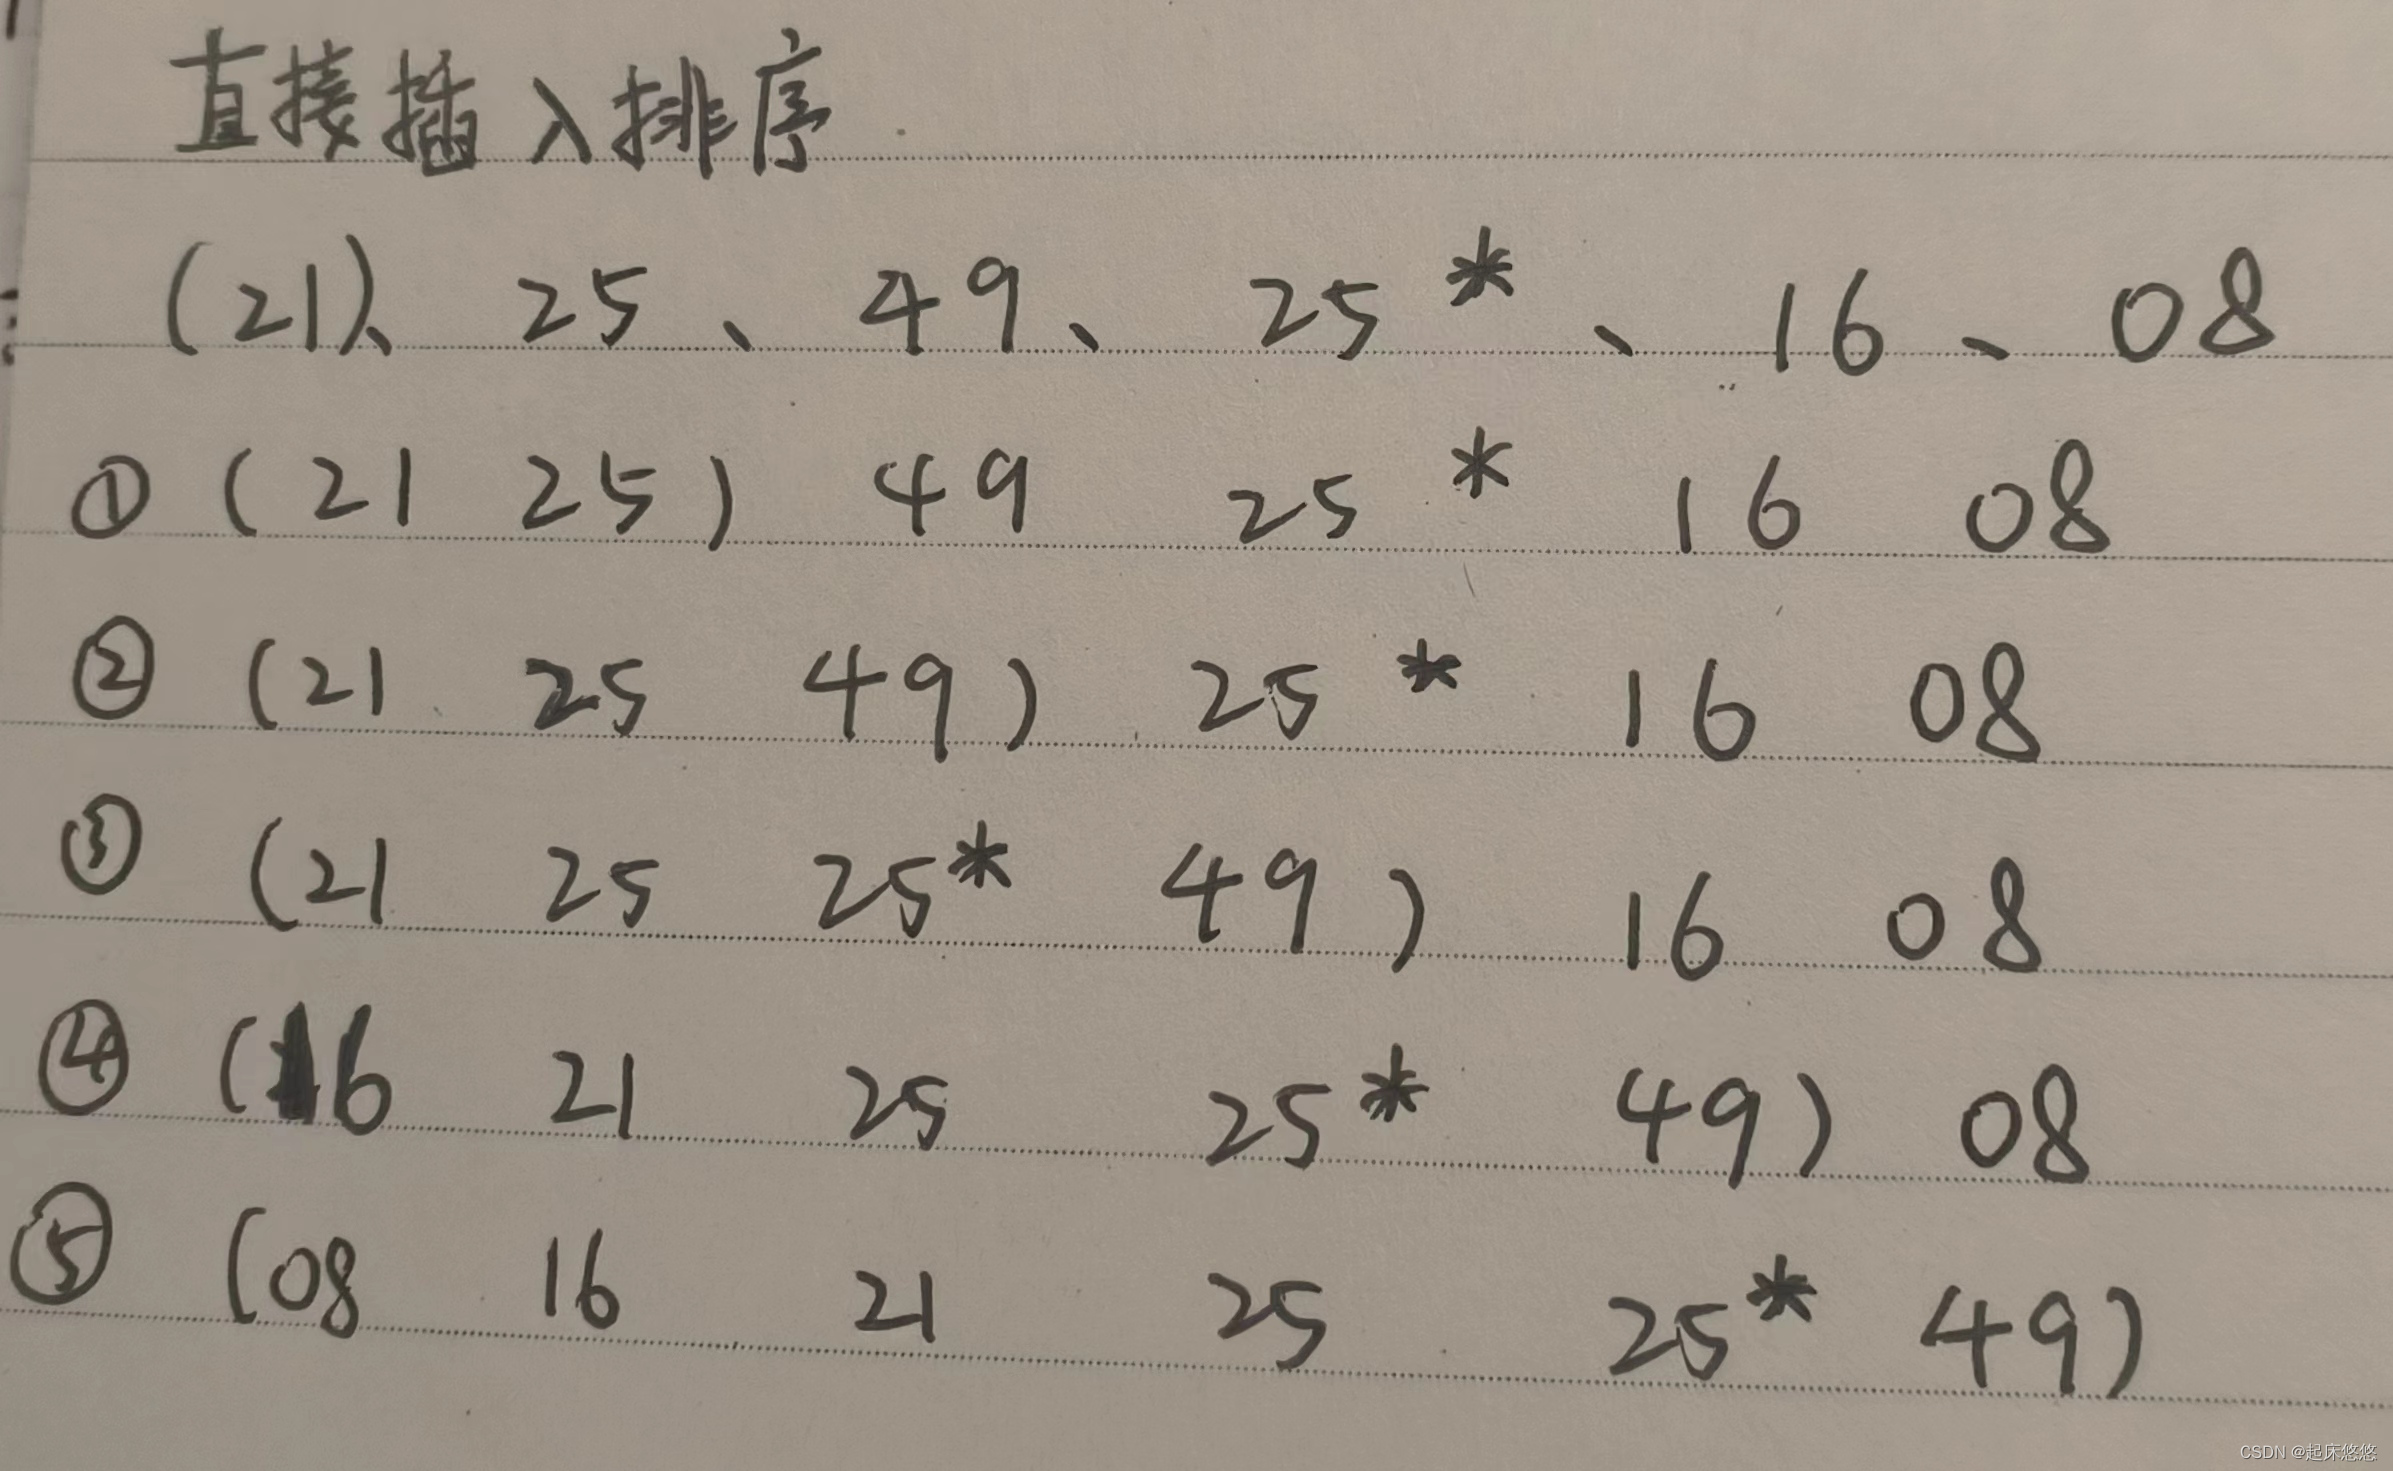 直接插入排序
(21)、25、49、25*、16、08
① (21 25) 49 25* 16 08
② (21 25 49) 25* 16 08
③ (21 25 25* 49) 16 08
④ (16 21 25 25* 49) 08
⑤ (08 16 21 25 25* 49)
CSDN @起床悠悠